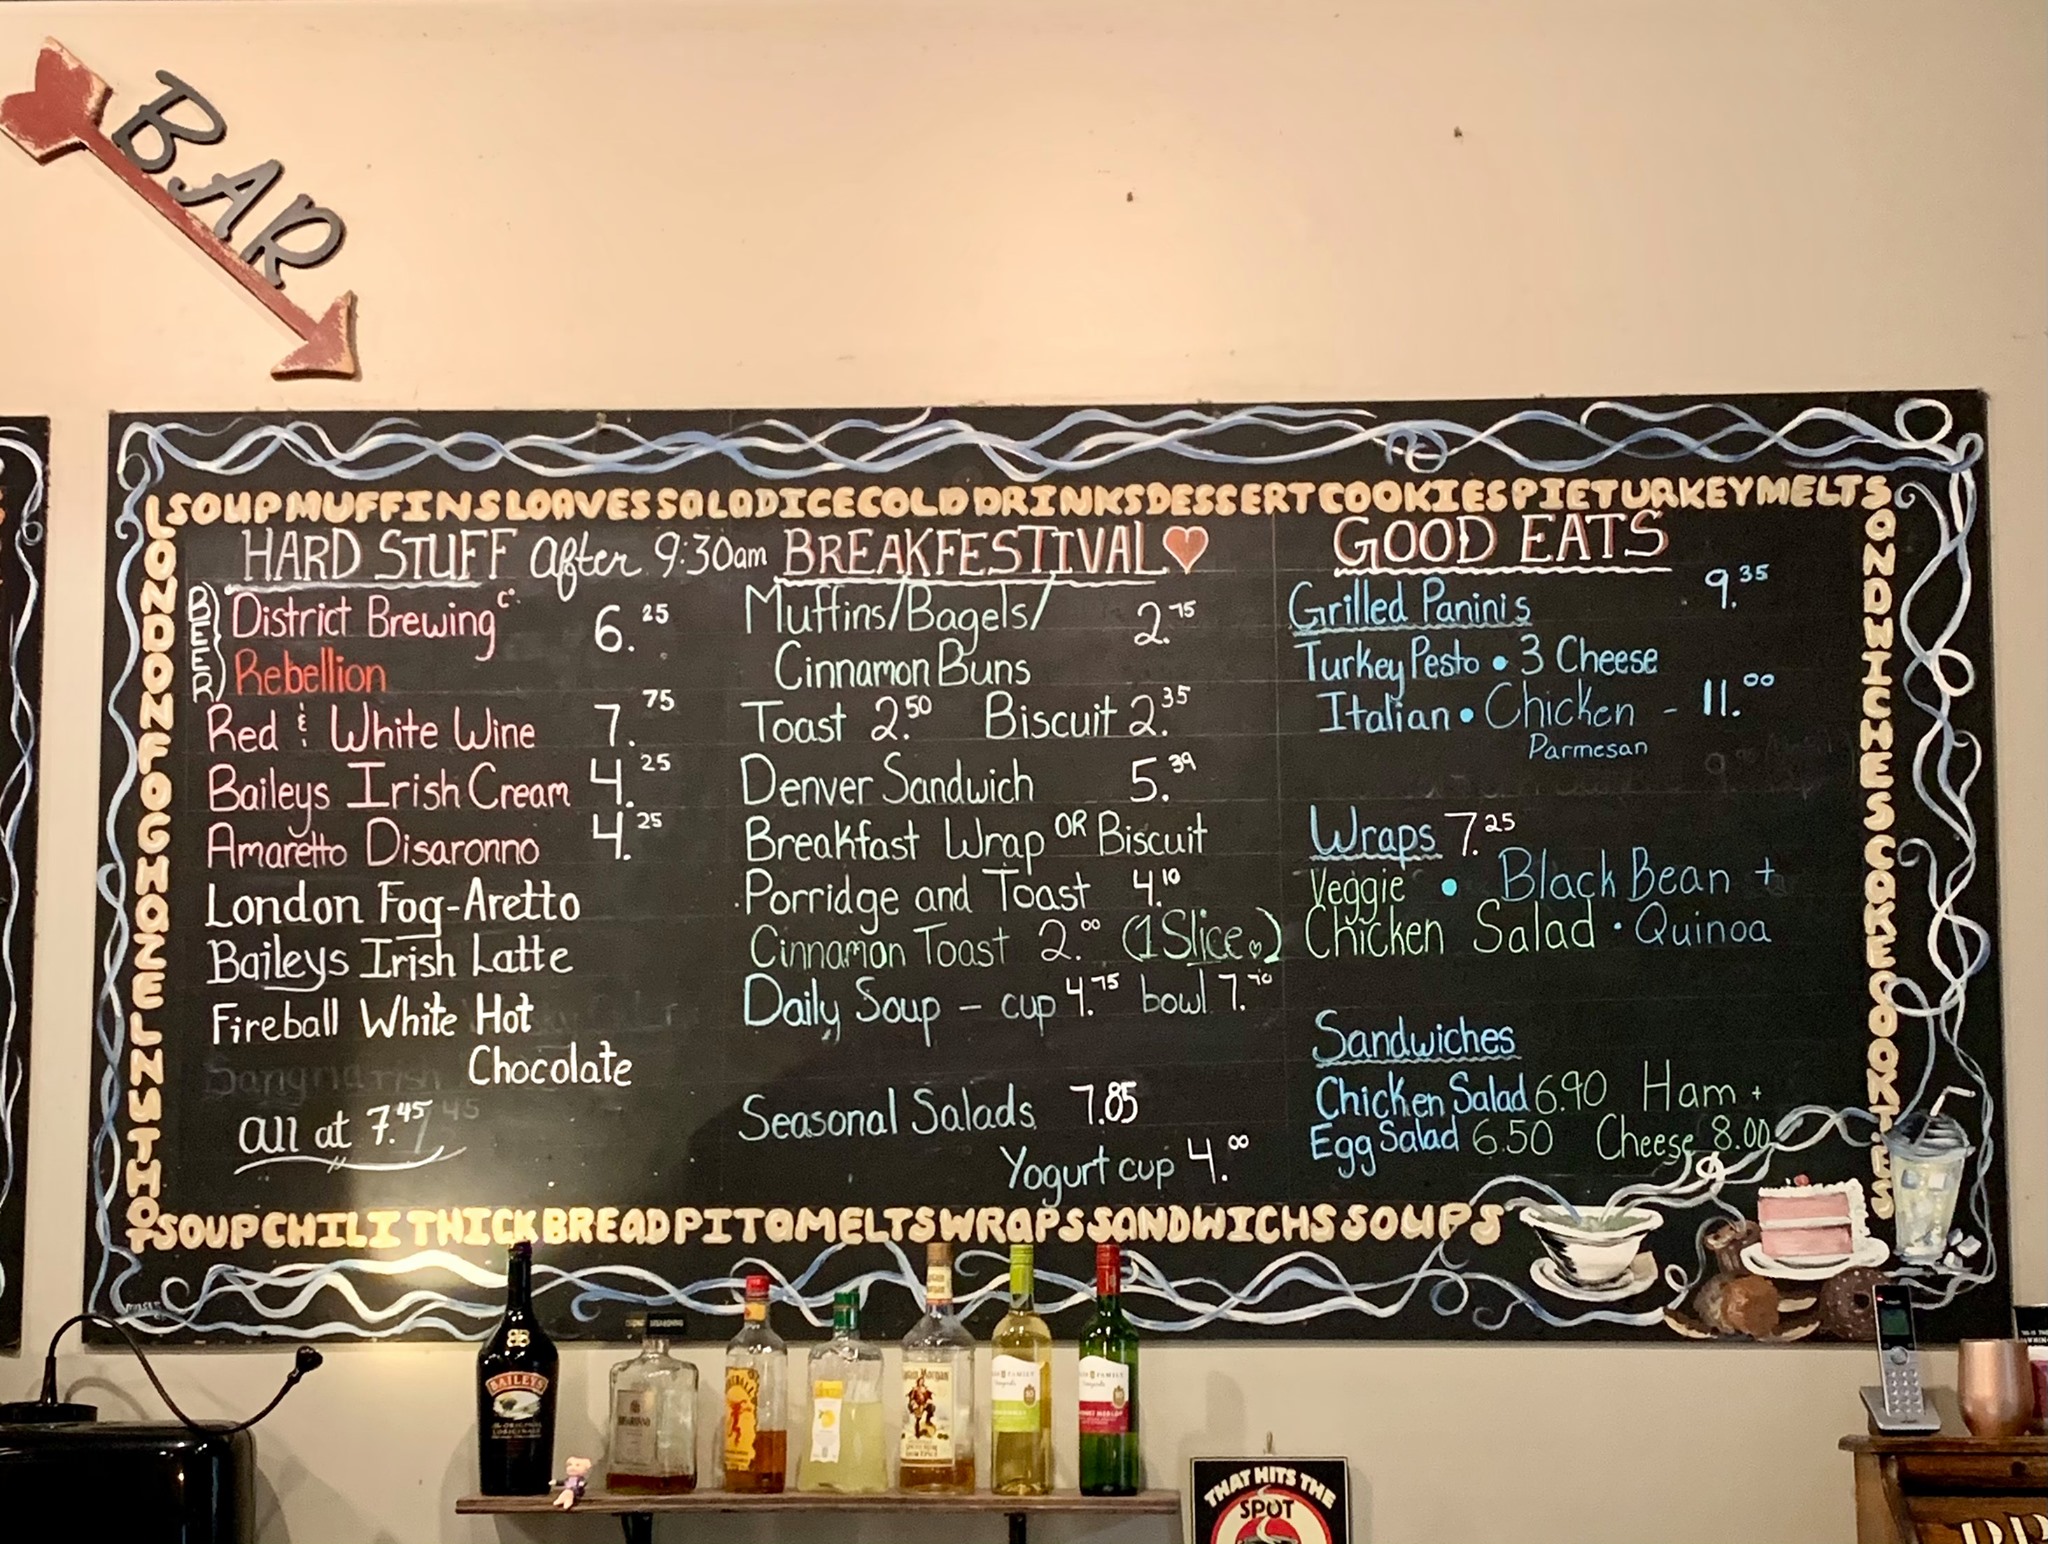 BAR
SOUPMUFFINSLOAVESSALADICECOLDDRINKSDESSERTCOOKIESPIETURKEYMELTS
LONDONFOGHAZELNUTHOT
HARD STUFF after 9:30am
BEER
District Brewing C. 6.25
Rebellion
Red & White Wine 7.75
Baileys Irish Cream 4.25
Amaretto Disaronno 4.25
London Fog-Aretto
Baileys Irish Latte
Fireball White Hot
Chocolate
all at 7.45
BREAKFESTIVAL
Muffins/Bagels/ 2.75
Cinnamon Buns
Toast 2.50 Biscuit 2.35
Denver Sandwich 5.39
Breakfast Wrap OR Biscuit
Porridge and Toast 4.10
Cinnamon Toast 2.00 (1 Slice)
Daily Soup - cup 4.75 bowl 7.70
Seasonal Salads 7.85
Yogurt cup 4.00
GOOD EATS
Grilled Paninis 9.35
Turkey Pesto • 3 Cheese
Italian • Chicken - 11.00
Parmesan
Wraps 7.25
Veggie • Black Bean +
Chicken Salad • Quinoa
Sandwiches
Chicken Salad 6.90 Ham +
Egg Salad 6.50 Cheese 8.00
SOUPCHILITHICKBREADPITAMELTSWRAPSSANDWICHSSOUPS
BAILEYS
THAT HITS THE
SPOT